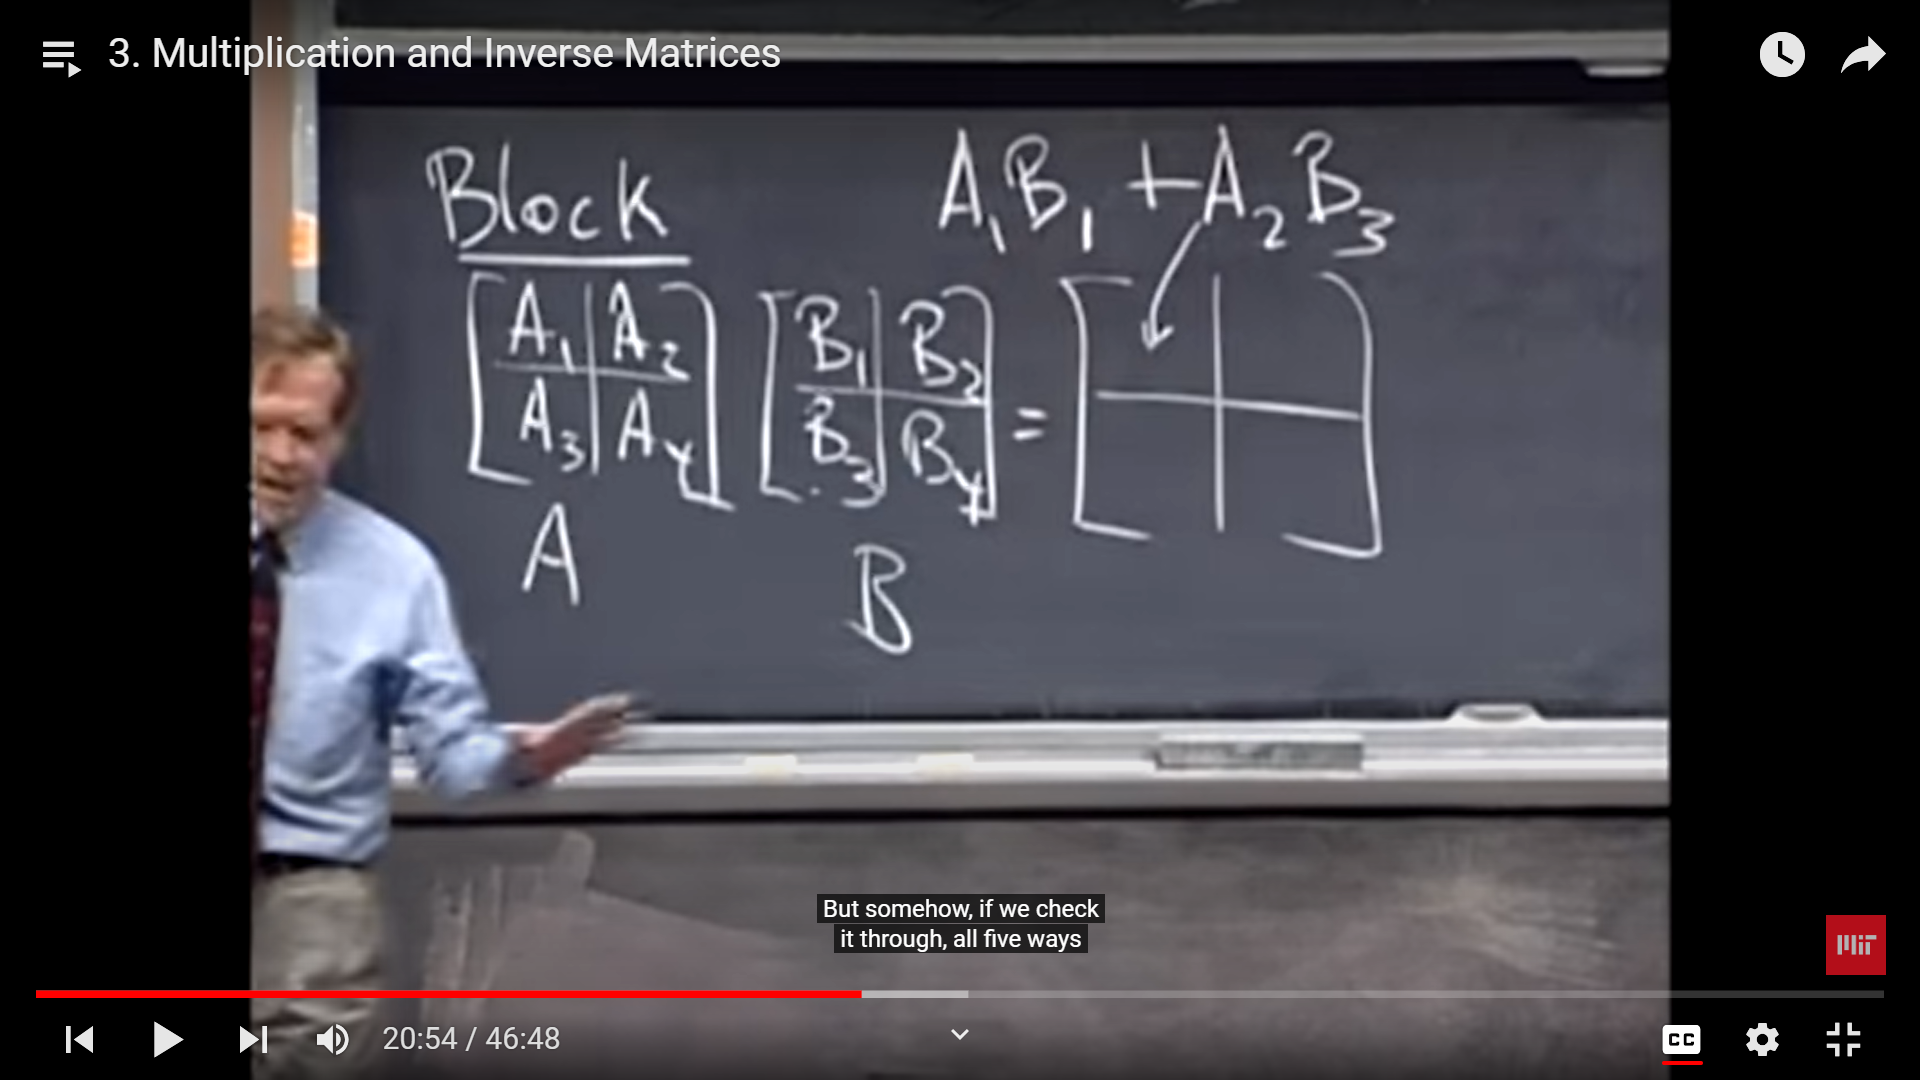 3. Multiplication and Inverse Matrices
Block
A₁B₁ + A₂B₃
A₁ A₂ B₁ B₂
=
A₃ A₄ B₃ B₄
A B
But somehow, if we check
it through, all five ways
MIT
20:54 / 46:48
CC